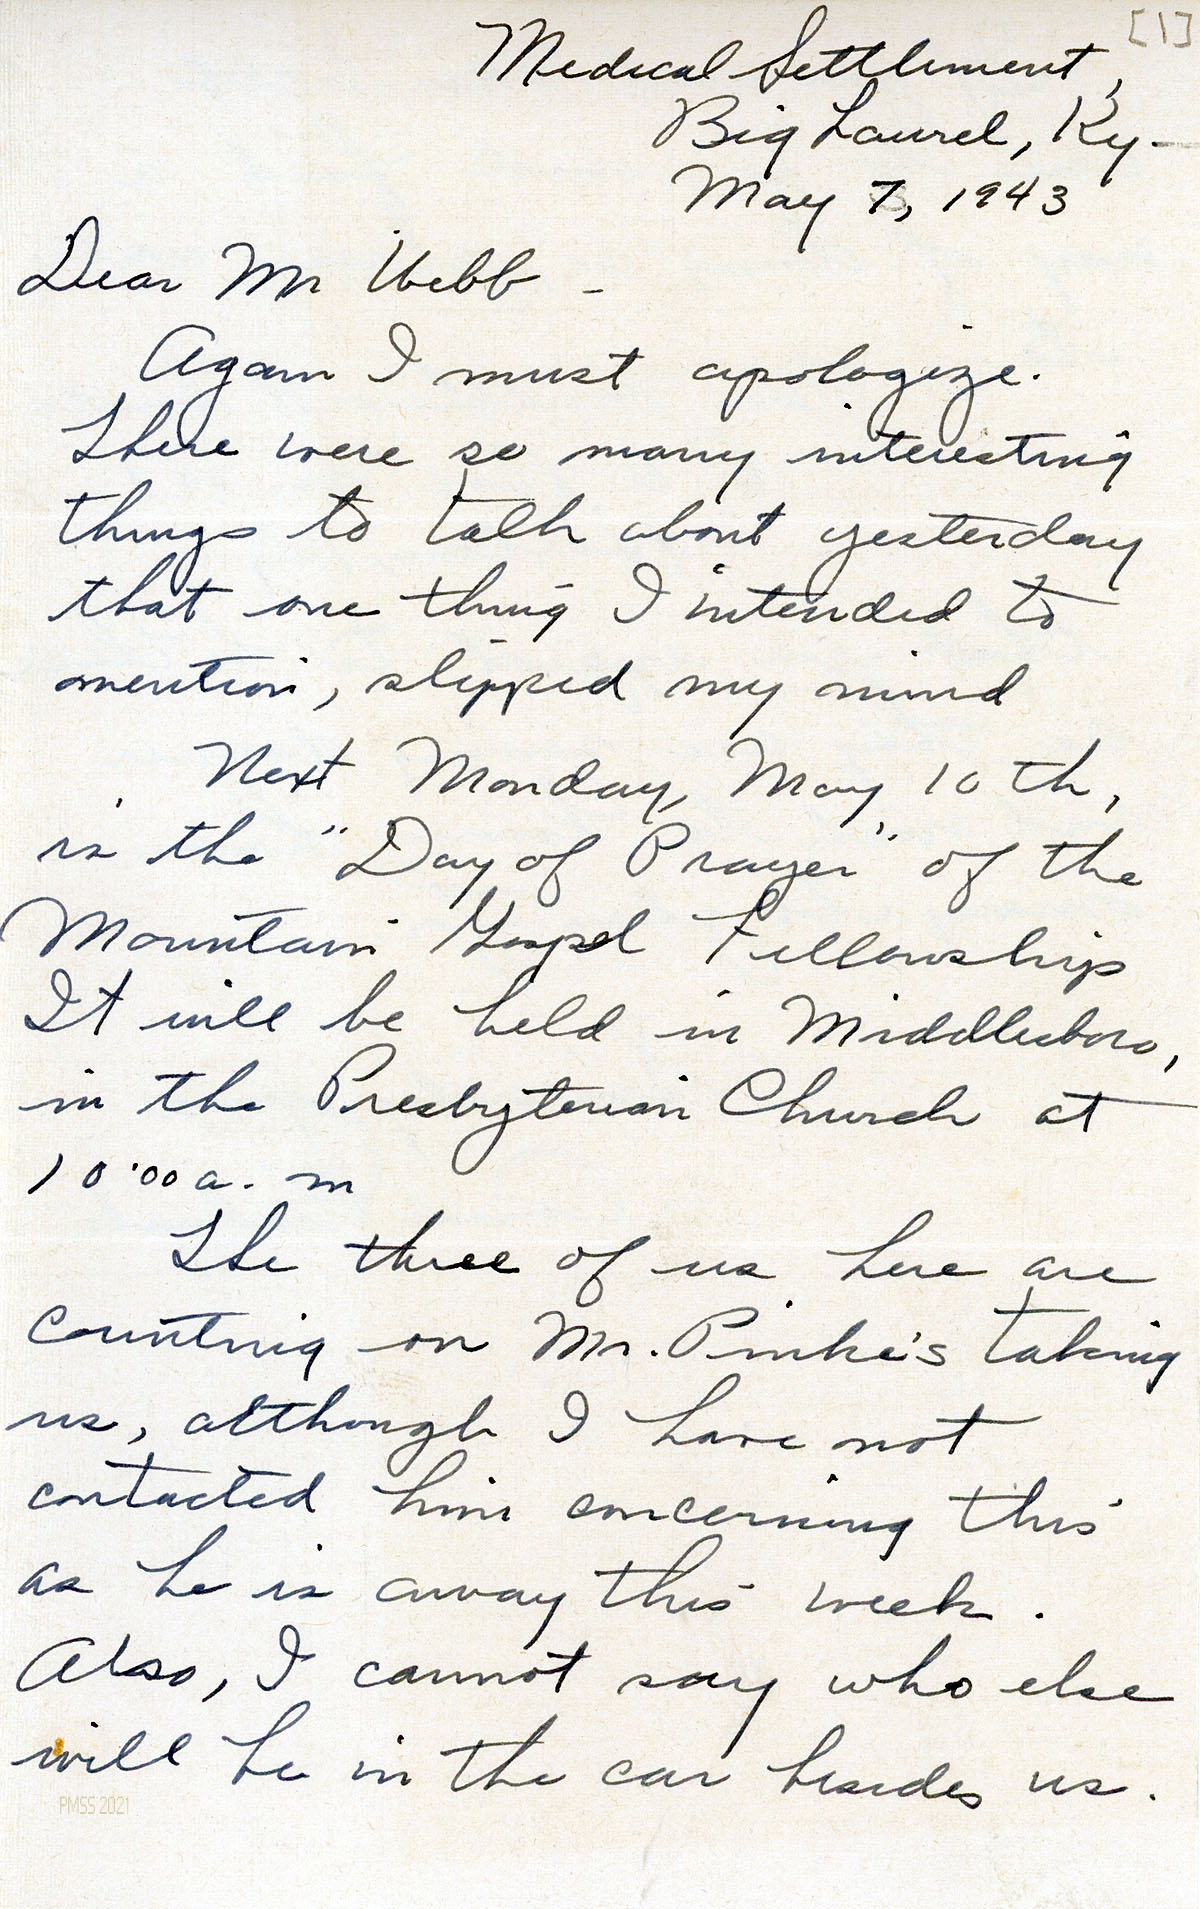 [1]
Medical Settlement,
Big Laurel, Ky-
May 7, 1943
Dear Mr Webb -
Again I must apologize.
There were so many interesting
things to talk about yesterday
that one thing I intended to
mention, slipped my mind
Next Monday, May 10th,
is the "Day of Prayer" of the
Mountain Gospel Fellowship
It will be held in Middlesboro,
in the Presbyterian Church at
10:00 a. m
The three of us here are
counting on Mr. Pinke's taking
us, although I have not
contacted him concerning this
as he is away this week.
Also, I cannot say who else
will be in the car besides us.
PMSS 2021